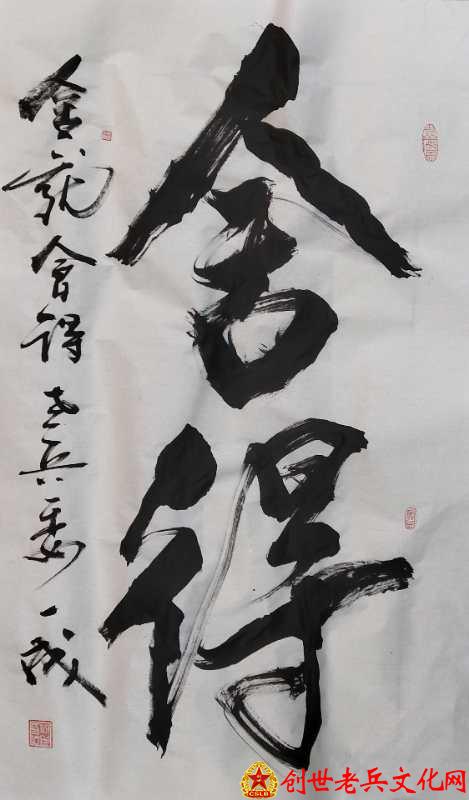 舍得
舍就会得 老兵 一
CSLB
创世老兵文化网